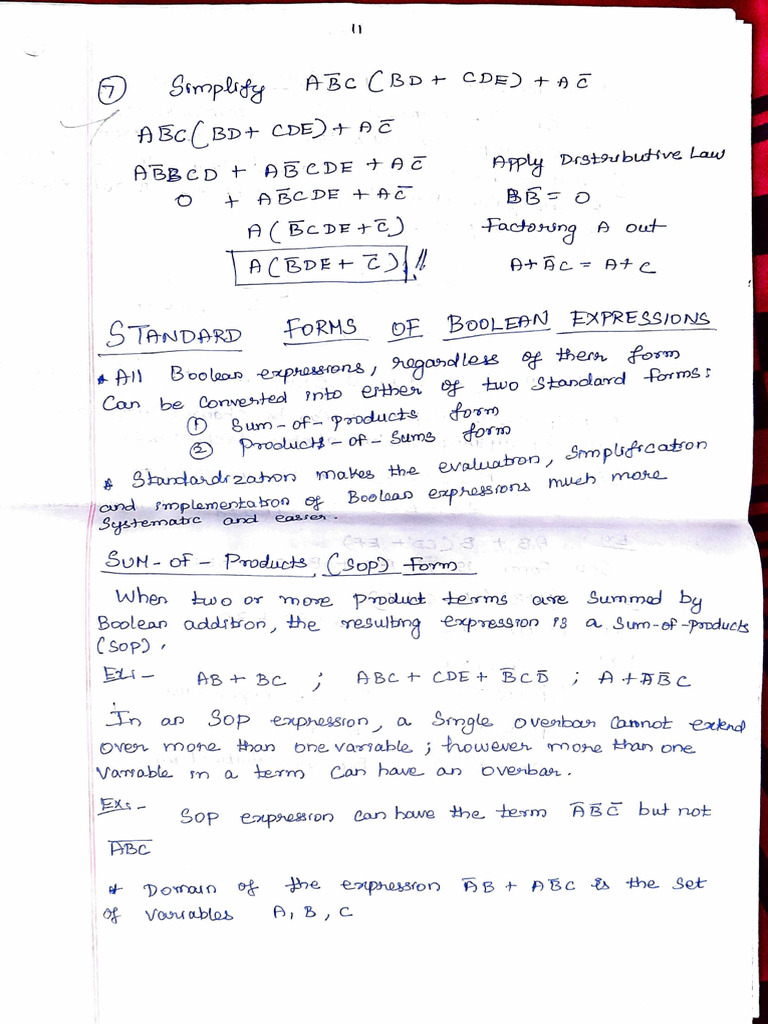 11
⑦ Simplify AB̄C (BD + CDE) + AC̄
AB̄C(BD + CDE) + AC̄
AB̄BCD + AB̄CDE + AC̄ Apply Distributive Law
0 + AB̄CDE + AC̄ BB̄ = 0
A(B̄CDE + C̄) Factoring A out
A(B̄DE + C̄) // A+ĀC = A+C
STANDARD FORMS OF BOOLEAN EXPRESSIONS
* All Boolean expressions, regardless of their form
Can be converted into either of two Standard forms:
① Sum-of-Products form
② Products-of-Sums form
* Standardization makes the evaluation, Simplification
and implementation of Boolean expressions much more
Systematic and easier.
SUM-OF-Products (SOP) Form
When two or more Product terms are Summed by
Boolean addition, the resulting expression is a Sum-of-Products
(SOP).
Ex:- AB + BC ; ABC + CDE + B̄CD̄ ; A + ĀB̄C
In an SOP expression, a Single overbar Cannot extend
over more than one variable ; however more than one
Variable in a term Can have an overbar.
Ex:- SOP expression can have the term ĀB̄C̄ but not
A̅B̅C̅
* Domain of the expression ĀB + AB̄C is the Set
of variables A, B, C